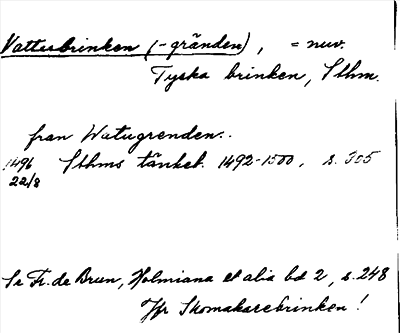 Vattubrinken (-gränden), = nuv.
Tyska brinken, Sthm.
fran Watugrenden..
1496 Sthms tänkeb. 1492-1500, s. 305
22/8
Se Fr. de Brun, Holmiana et alia bd 2, s. 248
Jfr Skomakarebrinken!